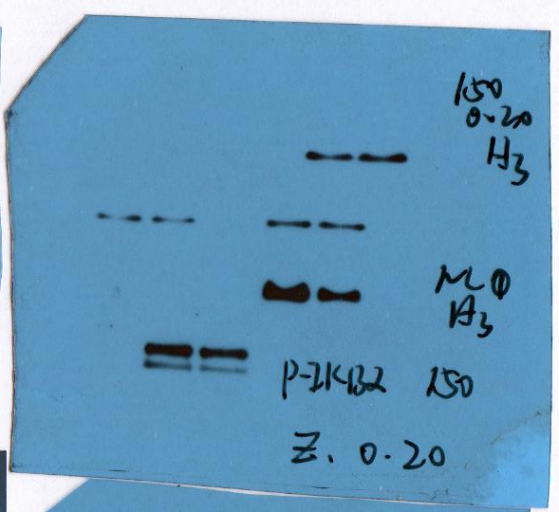 150
0.20
H3
A3
P-IKB2 150
Z. 0.20